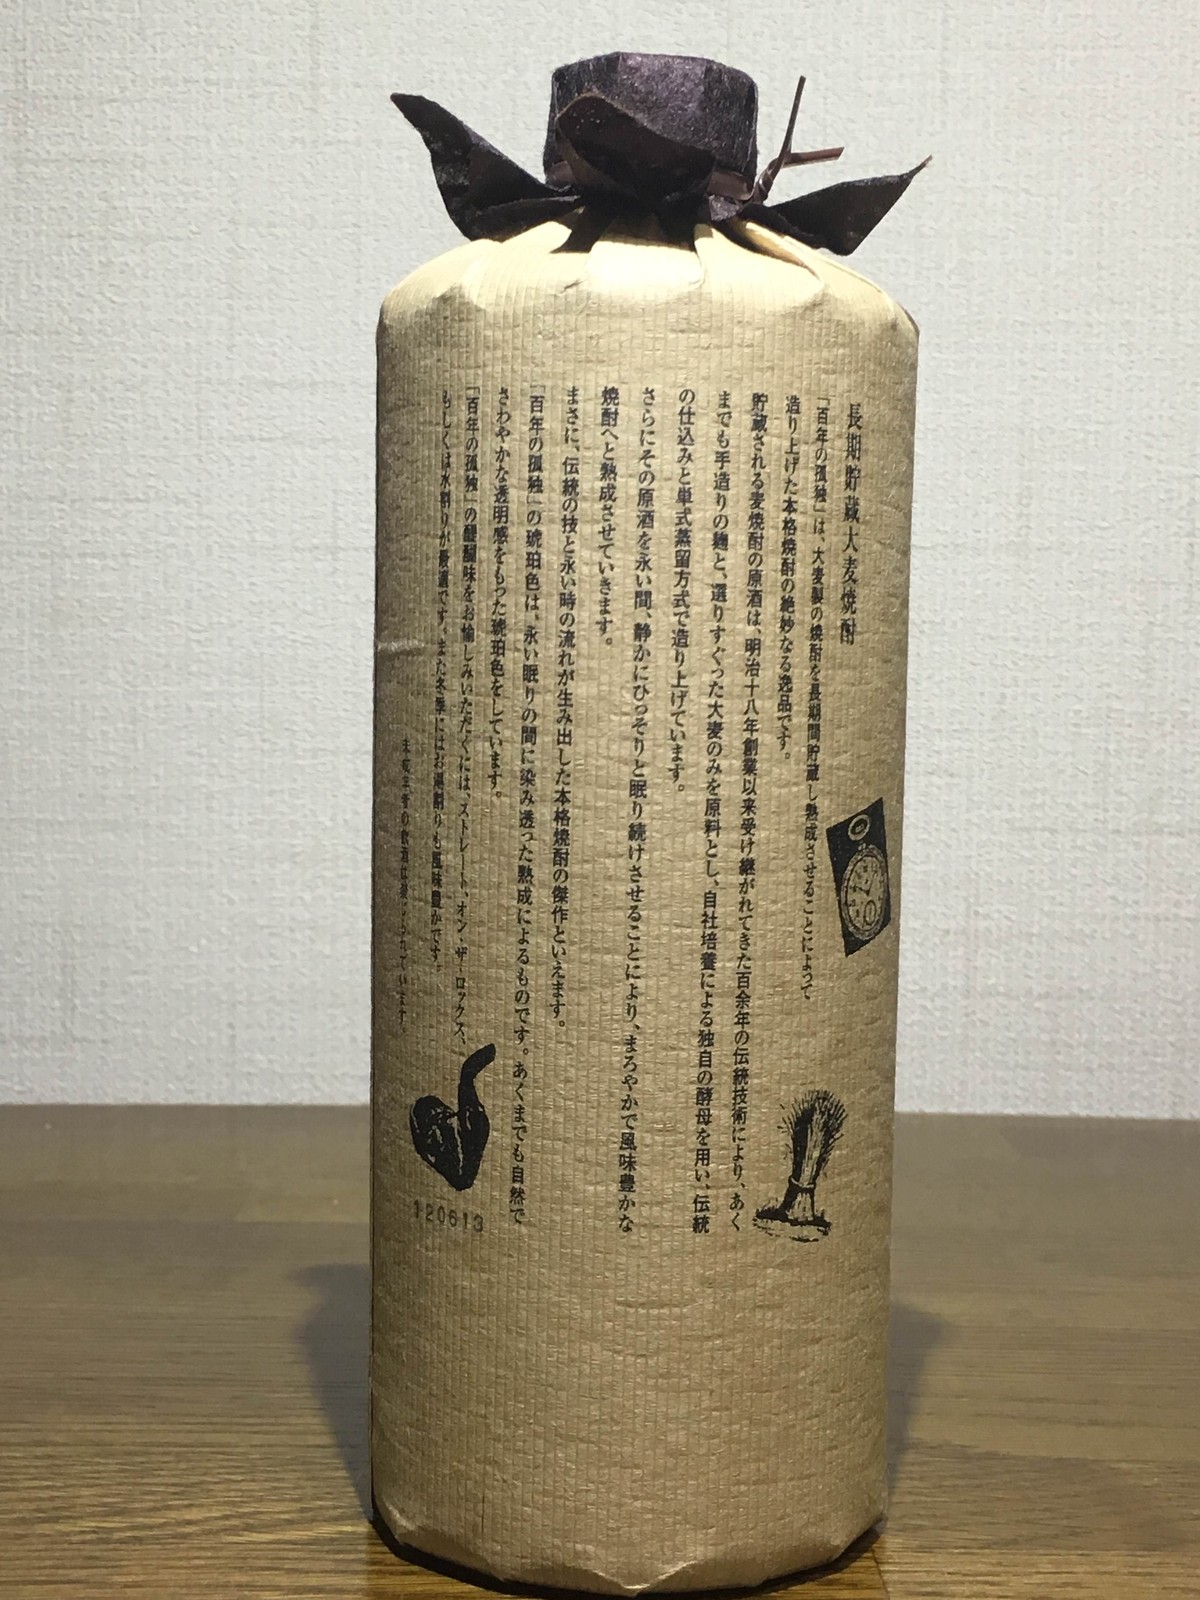 長期貯蔵大麦焼酎
「百年の孤独」は、大麦製の焼酎を長期間貯蔵し熟成させることによって
造り上げた本格焼酎の絶妙なる逸品です。
貯蔵される麦焼酎の原酒は、明治十八年創業以来受け継がれてきた百余年の伝統技術により、あく
までも手造りの麹と、選りすぐった大麦のみを原料とし、自社培養による独自の酵母を用い、伝統
の仕込みと単式蒸留方式で造り上げています。
さらにその原酒を永い間、静かにひっそりと眠り続けさせることにより、まろやかで風味豊かな
焼酎へと熟成させていきます。
まさに、伝統の技と永い時の流れが生み出した本格焼酎の傑作といえます。
「百年の孤独」の琥珀色は、永い眠りの間に染み透った熟成によるものです。あくまでも自然で
さわやかな透明感をもった琥珀色をしています。
「百年の孤独」の醍醐味をお愉しみいただくには、ストレート、オン・ザ・ロックス、
もしくは水割りが最適です。また冬季にはお湯割りも風味豊かです。
未成年者の飲酒は禁じられています。
120613